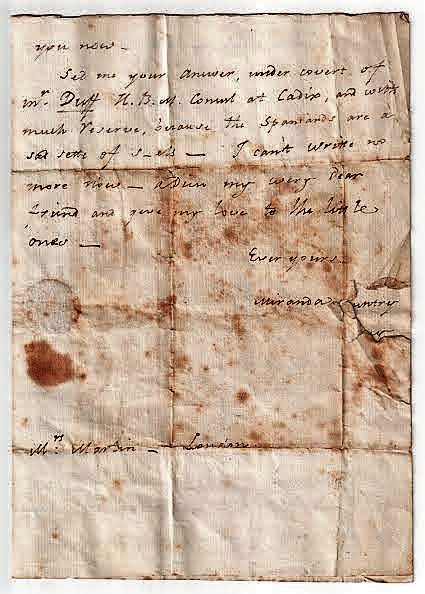 you now —
Sed me your Answer, under covert of
Mr. Duff H. B. M. Consul at Cadix, and with
much reserve, because the Spaniards are a
sad sette of s—els — I can't write no
more now — aDieu my wery Dear
friend and give my love to the little
ones —
Ever yours —
Miranda
Mrs. Martin — London